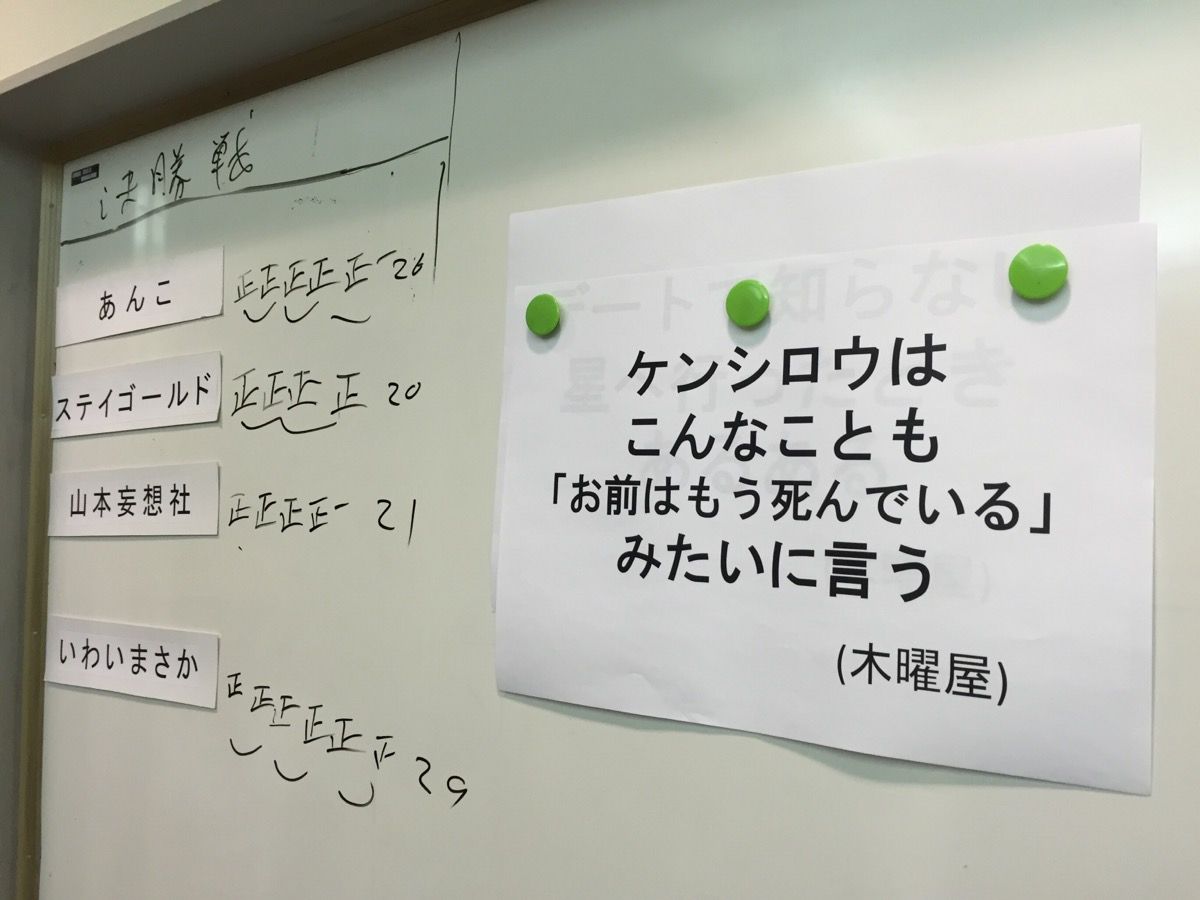 決勝戦
あんこ 正正正正正一 26
ステイゴールド 正正正正 20
山本妄想社 正正正正一 21
いわいまさか 正正正正正正 29
ケンシロウは
こんなことも
「お前はもう死んでいる」
みたいに言う
(木曜屋)
デートで知らない
星へ行ったとき